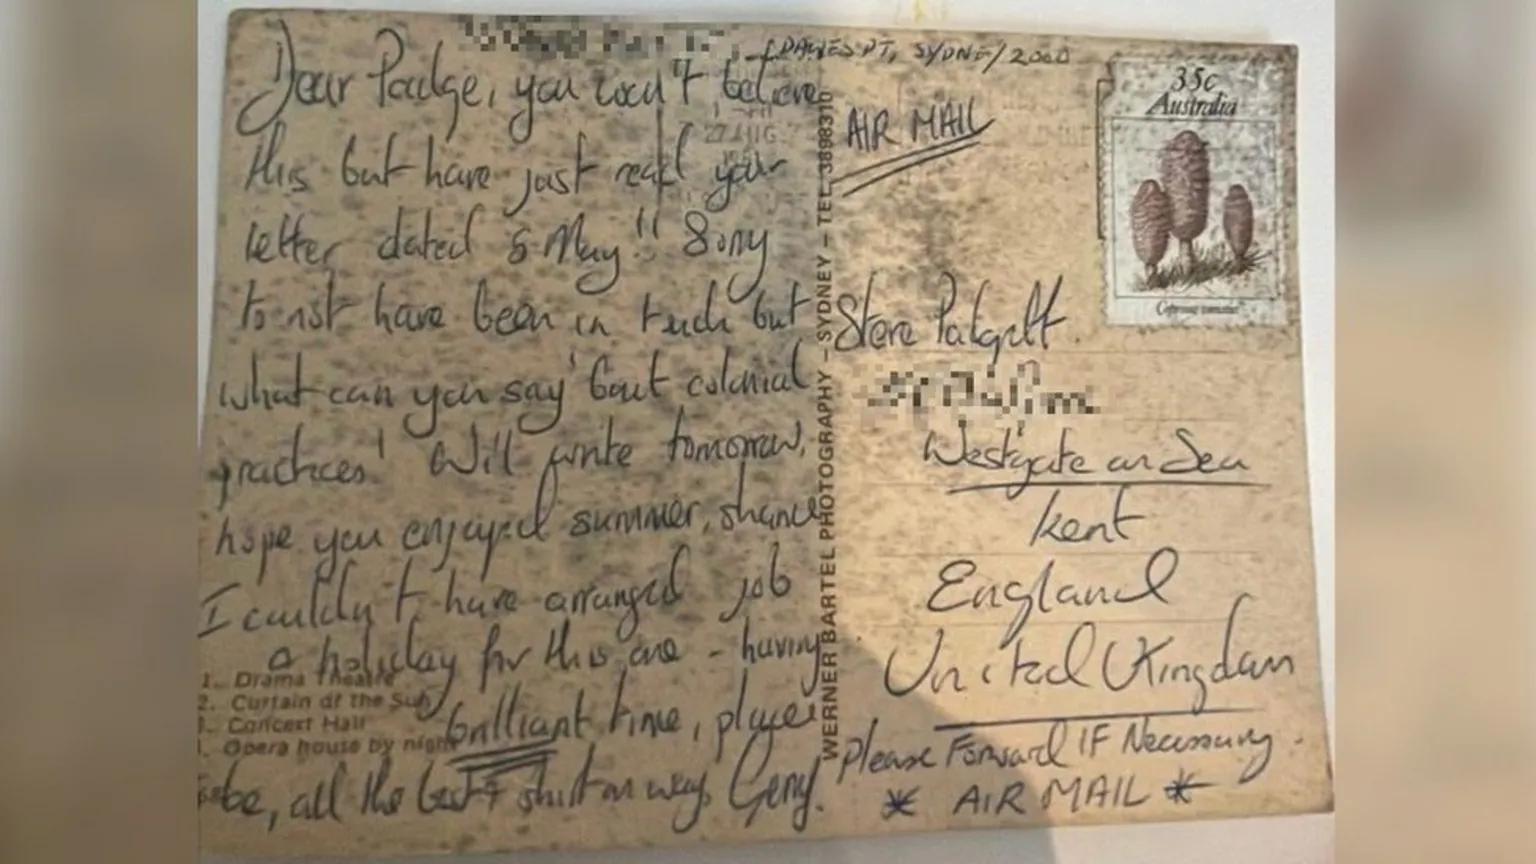 DAWES PT, SYDNEY 2000
Dear Padge, you won't believe
this but have just read your
letter dated 5 May!! Sorry
to not have been in touch but
what can you say 'bout colonial
practices! Will write tomorrow,
hope you enjoyed summer, shame
I couldn't have arranged job
a holiday for this one - having
brilliant time, place
be, all the best & shirt on way, Gerry.
1. Drama Theatre
2. Curtain of the Sun
3. Concert Hall
4. Opera house by night
27 AUG
WERNER BARTEL PHOTOGRAPHY – SYDNEY – TEL. 3898310
35c
Australia
AIR MAIL
Steve Padgett.
Westgate on Sea
Kent
England
United Kingdom
Please Forward IF Necessary.
* AIR MAIL *